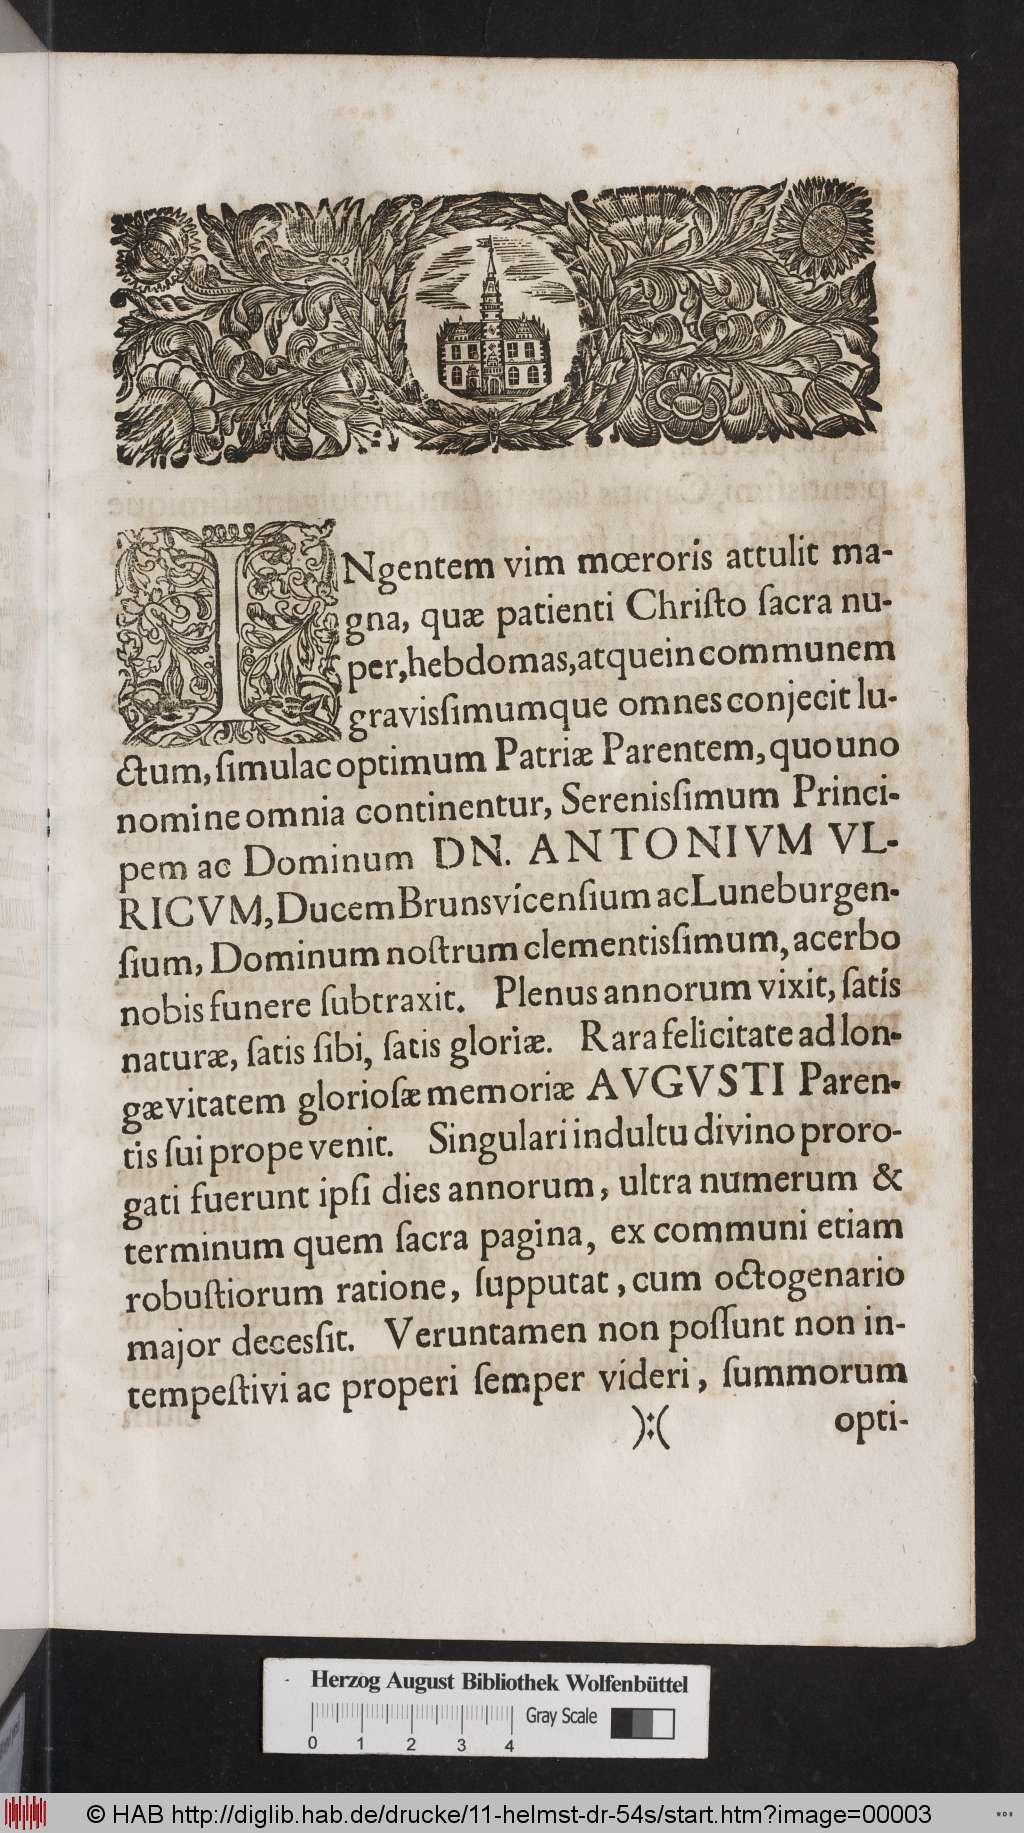 INgentem vim mœroris attulit ma-
gna, quæ patienti Chriſto ſacra nu-
per, hebdomas, atque in communem
gravisſimumque omnes conjecit lu-
ctum, ſimulac optimum Patriæ Parentem, quo uno
nomine omnia continentur, Serenisſimum Princi-
pem ac Dominum DN. ANTONIVM VL-
RICVM, Ducem Brunsvicenſium ac Luneburgen-
ſium, Dominum noſtrum clementisſimum, acerbo
nobis funere ſubtraxit. Plenus annorum vixit, ſatis
naturæ, ſatis ſibi, ſatis gloriæ. Rara felicitate ad lon-
gævitatem glorioſæ memoriæ AVGVSTI Paren-
tis ſui prope venit. Singulari indultu divino proro-
gati fuerunt ipſi dies annorum, ultra numerum &
terminum quem ſacra pagina, ex communi etiam
robuſtiorum ratione, ſupputat, cum octogenario
major decesſit. Veruntamen non poſſunt non in-
tempeſtivi ac properi ſemper videri, ſummorum
):( opti-
Herzog August Bibliothek Wolfenbüttel
Gray Scale
0 1 2 3 4
© HAB http://diglib.hab.de/drucke/11-helmst-dr-54s/start.htm?image=00003